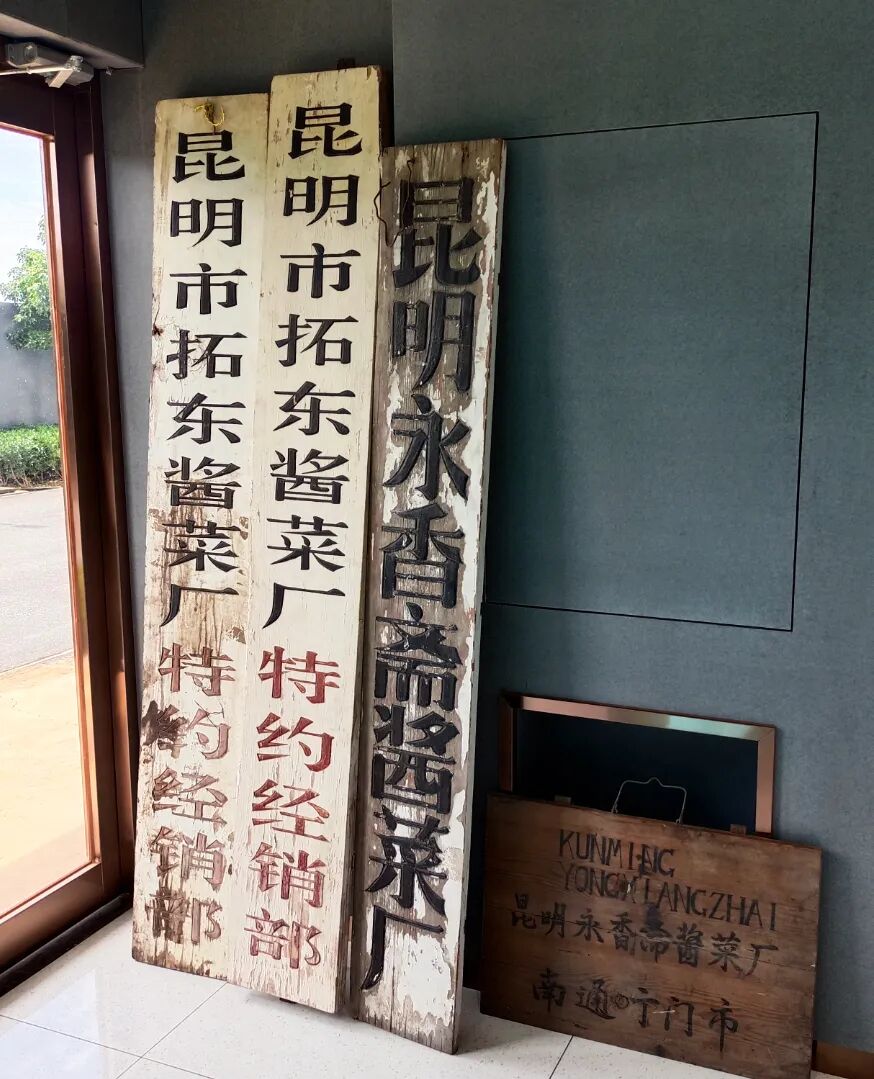 昆明市拓东酱菜厂特约经销部
昆明市拓东酱菜厂特约经销部
昆明永香斋酱菜厂
KUNMING
YONGXIANGZHAI
昆明永香斋酱菜厂
南通
门市